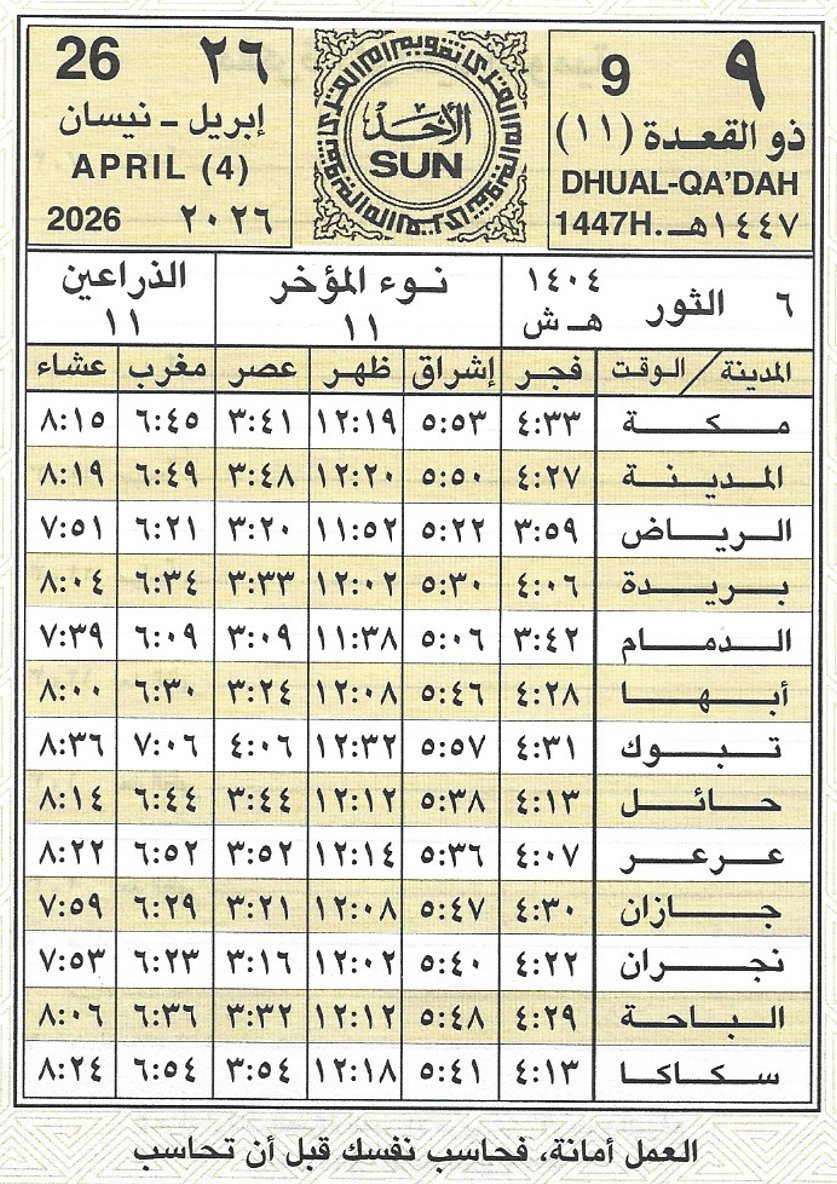 ٩ 9
ذو القعدة (١١)
DHUAL-QA'DAH
1447H. ١٤٤٧هـ
تقويم أم القرى
الأحد
SUN
٢٦ 26
إبريل ـ نيسان
APRIL (4)
2026 ٢٠٢٦
٦ الثور ١٤٠٤ هـ ش
نوء المؤخر ١١
الذراعين ١١
المدينة / الوقت فجر إشراق ظهر عصر مغرب عشاء
مكة ٤:٣٣ ٥:٥٣ ١٢:١٩ ٣:٤١ ٦:٤٥ ٨:١٥
المدينة ٤:٢٧ ٥:٥٠ ١٢:٢٠ ٣:٤٨ ٦:٤٩ ٨:١٩
الرياض ٣:٥٩ ٥:٢٢ ١١:٥٢ ٣:٢٠ ٦:٢١ ٧:٥١
بريدة ٤:٠٦ ٥:٣٠ ١٢:٠٢ ٣:٣٣ ٦:٣٤ ٨:٠٤
الدمام ٣:٤٢ ٥:٠٦ ١١:٣٨ ٣:٠٩ ٦:٠٩ ٧:٣٩
أبها ٤:٢٨ ٥:٤٦ ١٢:٠٨ ٣:٢٤ ٦:٣٠ ٨:٠٠
تبوك ٤:٣١ ٥:٥٧ ١٢:٣٢ ٤:٠٦ ٧:٠٦ ٨:٣٦
حائل ٤:١٣ ٥:٣٨ ١٢:١٢ ٣:٤٤ ٦:٤٤ ٨:١٤
عرعر ٤:٠٧ ٥:٣٦ ١٢:١٤ ٣:٥٢ ٦:٥٢ ٨:٢٢
جازان ٤:٣٠ ٥:٤٧ ١٢:٠٨ ٣:٢١ ٦:٢٩ ٧:٥٩
نجران ٤:٢٢ ٥:٤٠ ١٢:٠٢ ٣:١٦ ٦:٢٣ ٧:٥٣
الباحة ٤:٢٩ ٥:٤٨ ١٢:١٢ ٣:٣٢ ٦:٣٦ ٨:٠٦
سكاكا ٤:١٣ ٥:٤١ ١٢:١٨ ٣:٥٤ ٦:٥٤ ٨:٢٤
العمل أمانة، فحاسب نفسك قبل أن تحاسب